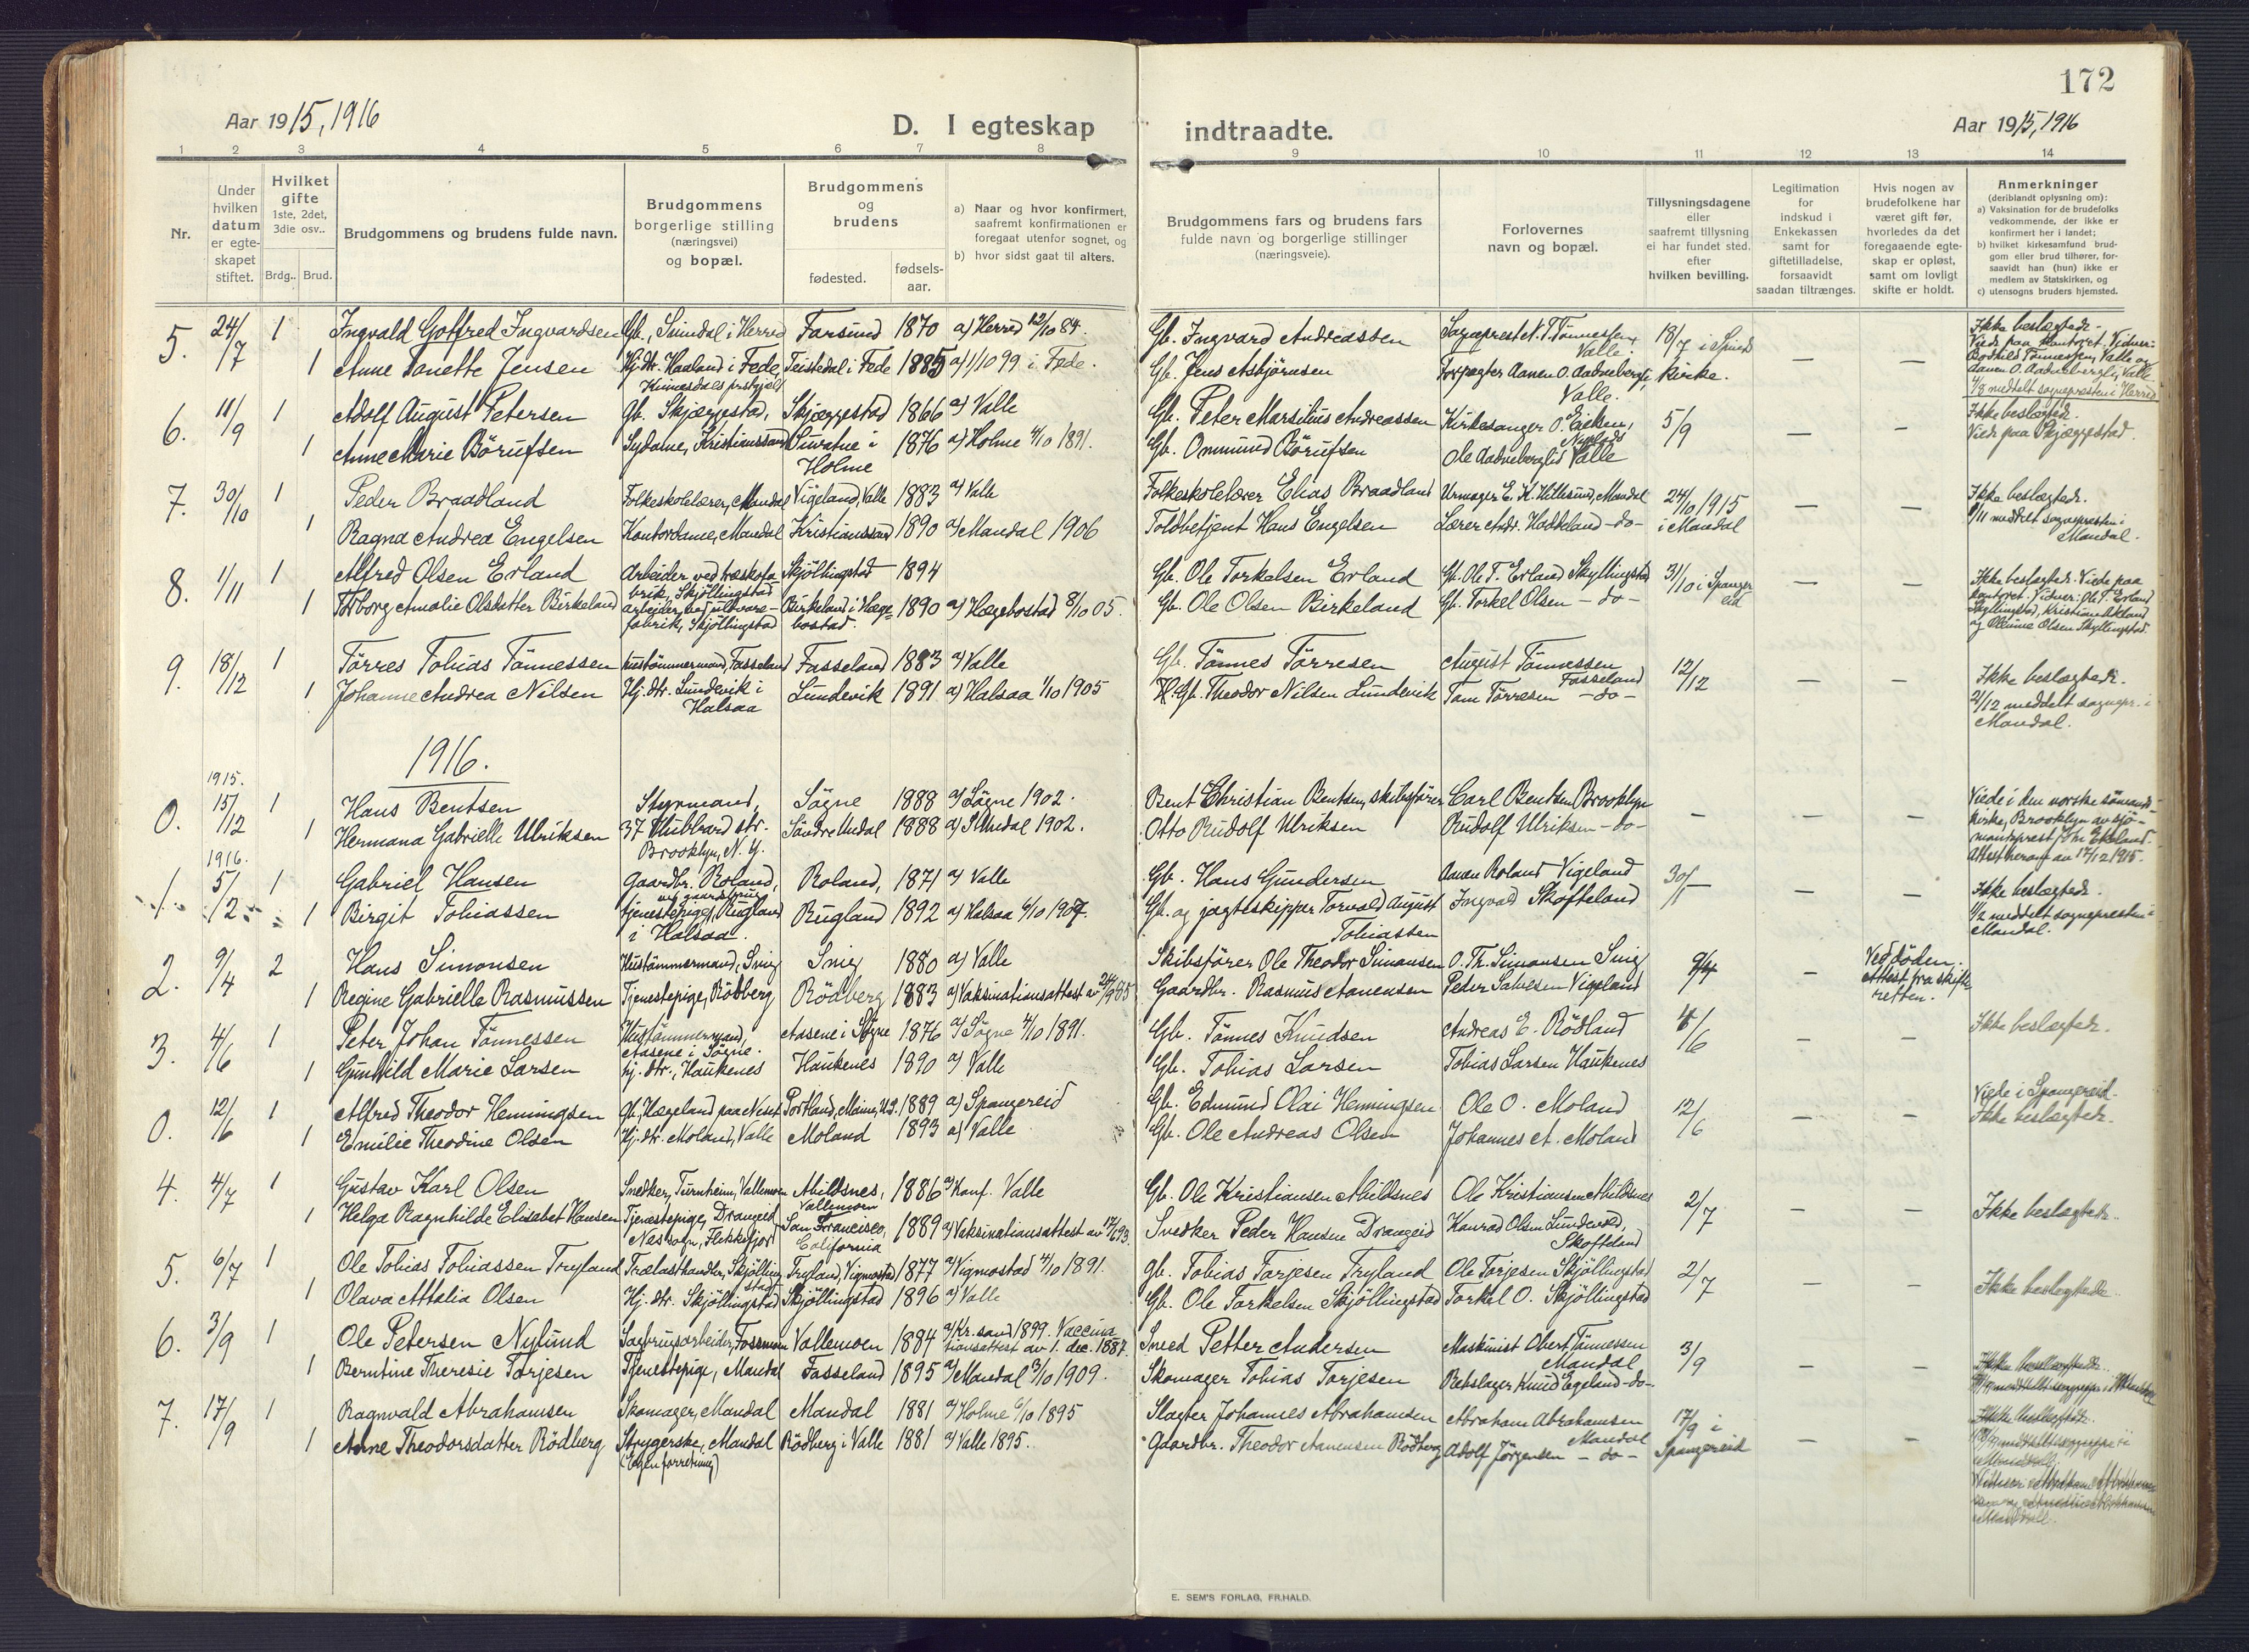 172
Aar 1915, 1916
D. I egteskap indtraadte.
Aar 1915, 1916
1 2 3 4 5 6 7 8 9 10 11 12 13 14
Nr.
Under hvilken datum er egte-skapet stiftet.
Hvilket gifte 1ste, 2det, 3die osv..
Brdg.. Brud.
Brudgommens og brudens fulde navn.
Brudgommens borgerlige stilling (næringsvei) og bopæl.
Brudgommens og brudens
fødested. fødsels-aar.
a) Naar og hvor konfirmert, saafremt konfirmationen er foregaat utenfor sognet, og
b) hvor sidst gaat til alters.
Brudgommens fars og brudens fars fulde navn og borgerlige stillinger (næringsveie).
Forlovernes navn og bopæl.
Tillysningsdagene eller saafremt tillysning ei har fundet sted. efter hvilken bevilling.
Legitimation for indskud i Enkekassen samt for giftetilladelse, forsaavidt saadan tiltrænges.
Hvis nogen av brudefolkene har været gift før, hvorledes da det foregaaende egte-skap er opløst, samt om lovligt skifte er holdt.
Anmerkninger (deriblandt oplysning om):
a) Vaksination for de brudefolks vedkommende, der ikke er konfirmert her i landet;
b) hvilket kirkesamfund brud-gom eller brud tilhører, for-saavidt han (hun) ikke er medlem av Statskirken, og
c) utensogns bruders hjemsted.
5. 24/7 1 Ingvald Gotfred Ingvardsen Gb., Sundal i Herred Farsund 1870 a) Herred 12/10 84. Gb. Ingvard Andreassen Sogneprest N. T. Tønnessen, Valle. 18/7 i Spind kirke. — — Ikke beslægtede.
1 Anne Tonette Jensen Hj. dtr. Haaland i Fede, Kvinesdals prstgjeld Teistedal i Fede 1885 a) 1/10 99 i Fede. Gb. Jens Asbjørnsen Forpagter Aanen O. Aadnebergli, Valle. Viede paa kontoret. Vidner: Bodhild Tønnessen, Valle og Aanen O. Aadnebergli, Valle meddelt sognepresten i Herred
6. 11/9 1 Adolf August Petersen Gb. Skjæggestad, Skjæggestad 1866 a) Valle Gb. Peter Marsilius Andreassen Kirkesanger O. Eieken, 5/9 — — Ikke beslægtede.
1 Anne Marie Börufsen Sydame, Kristianssand i Holme 1876 a) Holme 4/10 1891. Gb. Ommund Börufsen Ole Aadnebergli Valle Viede paa Skjæggestad.
7. 30/10 1 Peder Braadland Folkeskolelærer, Mandal Vigeland, Valle 1883 a) Valle Folkeskolelærer Elias Braadland Urmager E. K. Hillesund, Mandal 24/10 1915 i Mandal — — Ikke beslægtede.
1 Ragna Andrea Engelsen Kontordame, Mandal Kristianssand 1890 a) Mandal 1906 Toldbetjent Hans Engelsen Lærer Andr. Haddeland -do- /11 meddelt sognepresten i Mandal.
8. 1/11 1 Alfred Olsen Erland Arbeider ved træskofa-brik, Skjöllingstad Skjöllingstad 1894 Gb. Ole Torkelsen Erland Gb. Ole T. Erland Skyllingstad 31/10 i Spangereid — — Ikke beslægtede. Viede paa kontoret. Vidner: Ole T. Erland
1 Torborg Amalie Olsdatter Birkeland arbejder ved uldvare-fabrik, Skjöllingstad Birkeland i Hæge-bostad. 1890 a) Hægebostad 8/10 05. Gb. Ole Olsen Birkeland Gb. Torkel Olsen -do- Skyllingstad, Kristiane og Olsen Skyllingstad.
9. 18/12 1 Törres Tobias Tönnessen Hustömmermand, Fasseland Fasseland 1883 a) Valle Gb. Tönnes Törresen August Tönnessen Fasseland 12/12 — — Ikke beslægtede.
1 Johanne Andrea Nilsen Hj. dtr. Lundevik i Halsaa Lundevik 1891 a) Halsaa 1/10 1905 Gb. Theodor Nilsen Lundevik Tom Törresen -do- 21/12 meddelt sognepr. i Mandal.
1916.
1915.
0. 15/12 1 Hans Bentsen Styrmand, Sögne 1888 a) Sögne 1902. Bent Christian Bentsen, skibsfører Carl Bentsen Brooklyn — — — Viede i den norske sömands-kirke, Brooklyn av sjö-
1 Hermana Gabrielle Ulriksen 37 Hubbard str. Brooklyn, N. Y. Söndre Undal 1888 a) S. Undal 1902. Otto Rudolf Ulriksen Rudolf Ulriksen -do- mandsprest Attest herom av 17/12 1915.
1916.
1. 5/2 1 Gabriel Hansen Gaardbr. Roland, Roland, 1871 a) Valle Gb. Hans Gundersen Aanen Roland Vigeland 30/1 — — Ikke beslægtede.
1 Birgit Tobiassen tjenestepige, Rugland i Halsaa. Rugland 1892 a) Halsaa 6/10 1907. Gb. og jagtskipper Torvald August Tobiassen Ingvald Skofteland /2 meddelt sognepresten i Mandal.
2. 9/4 2 Hans Simonsen Hustömmermand, Snig Snig 1880 a) Valle Skibsförer Ole Theodor Simonsen O. Th. Simonsen Snig 9/4 — Ved döden. Attest fra skifte-retten.
1 Regine Gabrielle Rasmussen Tjenestepige, Rödberg Rödberg 1883 a) Vaksinationsattest av Gaardbr. Rasmus Aanensen Peder Salvesen Vigeland
3. 4/6 1 Peter Johan Tönnessen Hustömmermand, Aasene i Sögne. Aasene i Sögne 1876 a) Sögne 4/10 1891. Gb. Tönnes Knudsen Andreas E. Rödland 4/6 — — Ikke beslægtede.
1 Gunhild Marie Larsen hj. dtr., Haukenes Haukenes 1890 a) Valle Gb. Tobias Larsen Tobias Larsen Haukenes
0. 12/6 1 Alfred Theodor Henningsen Gb. Hægeland paa Neset Portland, Maine, U.S. 1889 a) Spangereid Gb. Edmund Olai Henningsen Ole O. Moland 12/6 — — Viede i Spangereid.
1 Emilie Theodine Olsen Hj. dtr. Moland, Valle Moland 1893 a) Valle Gb. Ole Andreas Olsen Johannes A. Moland Ikke beslægtede.
4. 4/7 1 Gustav Karl Olsen Snedker, Turnheim, Vallemoen Abildsnes, Vallemoen 1886 a) Konf. Valle Gb. Ole Kristiansen Abildsnes Ole Kristiansen Abildsnes 2/7 — — Ikke beslægtede.
1 Helga Ragnhilde Elisabet Hansen Tjenestepige, Drangeid Nes sogn, Flekkefjord San Francisco, California 1889 a) Vaksinationsattest av 17/6 93. Snedker Peder Hansen Drangeid Konrad Olsen Lundevold, Skofteland
5. 6/7 1 Ole Tobias Tobiassen Tryland Trælasthandler, Skjölling-stad Tryland, Vigmostad 1877 a) Vigmostad 4/10 1891. Gb. Tobias Torjesen Tryland Ole Torjesen Skjöllingstad 2/7 — — Ikke beslegtede.
1 Olava Attalia Olsen Hj. dtr. Skjöllingstad Skjöllingstad 1896 a) Valle Gb. Ole Torkelsen Skjöllingstad Torkel O. Skjöllingstad
6. 3/9 1 Ole Petersen Nylund Sagbrugsarbeider, Fossmoen Vallemoen 1884 a) Kr.sand 1899. Vaccina-tionsattest av 1. dec. 1887. Smed Petter Andersen Maskinist Obert Tönnessen Mandal 3/9 — — Ikke beslægtede.
1 Berntine Theresie Torjesen Tjenestepige, Mandal Fasseland 1895 a) Mandal 3/10 1909. Skomager Tobias Torjesen Rebslager Knud Egeland -do-
7. 17/9 1 Ragnvald Abrahamsen Skomager, Mandal Mandal 1881 a) Holme 6/10 1895 Slagter Johannes Abrahamsen Abraham Abrahamsen Mandal 17/9 i Spangereid — — Ikke beslægtede.
1 Anne Theodorsdatter Rödberg Strygerske, Mandal (Egen forretning) Rödberg i Valle 1881 a) Valle 1895. Gaardbr. Theodor Aanensen Rödberg Adolf Jörgensen -do-
E. SEM'S FORLAG, FR.HALD.